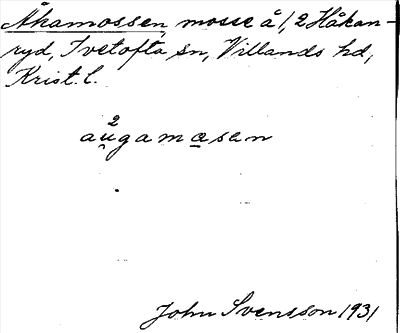 Åkamossen, mosse å 1, 2 Håkan-
ryd, Ivetofta sn, Villands hd,
Krist. l.
2
au̯gamo̲san
John Svensson 1931